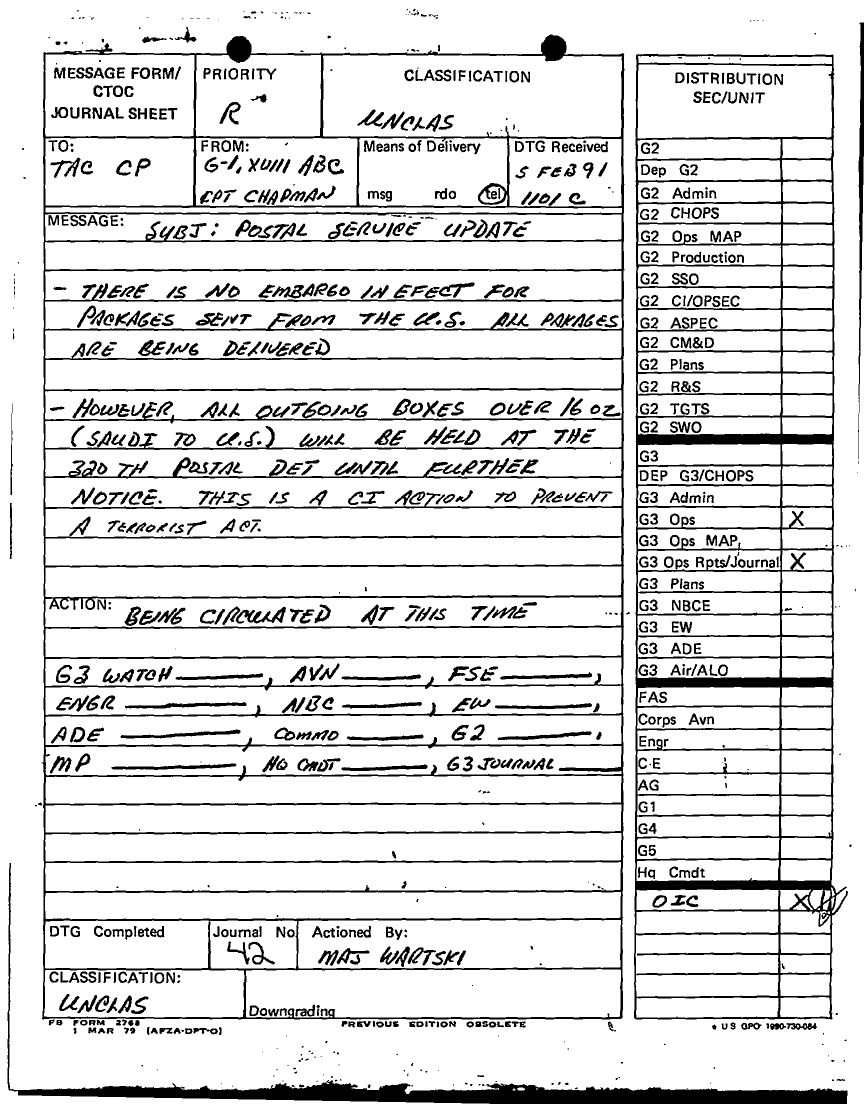 MESSAGE FORM/
CTOC
JOURNAL SHEET
PRIORITY
R
CLASSIFICATION
UNCLAS
TO:
TAC CP
FROM:
G-1, XVIII ABC
CPT CHAPMAN
Means of Delivery
msg rdo tel
DTG Received
5 FEB 91
1101 C
MESSAGE: SUBJ: POSTAL SERVICE UPDATE
- THERE IS NO EMBARGO IN EFECT FOR
PACKAGES SENT FROM THE U.S. ALL PAKAGES
ARE BEING DELIVERED
- HOWEVER, ALL OUTGOING BOXES OVER 16 OZ
(SAUDI TO U.S.) WILL BE HELD AT THE
320 TH POSTAL DET UNTIL FURTHER
NOTICE. THIS IS A CI ACTION TO PREVENT
A TERRORIST ACT.
ACTION: BEING CIRCULATED AT THIS TIME
G3 WATCH ______, AVN ______, FSE ______,
ENGR ______, NBC ______, EW ______,
ADE ______, COMMO ______, G2 ______,
MP ______, HQ CMDT ______, G3 JOURNAL ______
DTG Completed
Journal No
42
Actioned By:
MAJ WARTSKI
CLASSIFICATION:
UNCLAS
Downgrading
FB FORM 2768
1 MAR 79 (AFZA-DPT-O)
PREVIOUS EDITION OBSOLETE
DISTRIBUTION
SEC/UNIT
G2
Dep G2
G2 Admin
G2 CHOPS
G2 Ops MAP
G2 Production
G2 SSO
G2 CI/OPSEC
G2 ASPEC
G2 CM&D
G2 Plans
G2 R&S
G2 TGTS
G2 SWO
G3
DEP G3/CHOPS
G3 Admin
G3 Ops X
G3 Ops MAP
G3 Ops Rpts/Journal X
G3 Plans
G3 NBCE
G3 EW
G3 ADE
G3 Air/ALO
FAS
Corps Avn
Engr
C-E
AG
G1
G4
G5
Hq Cmdt
OIC X
* US GPO 1990-730-084